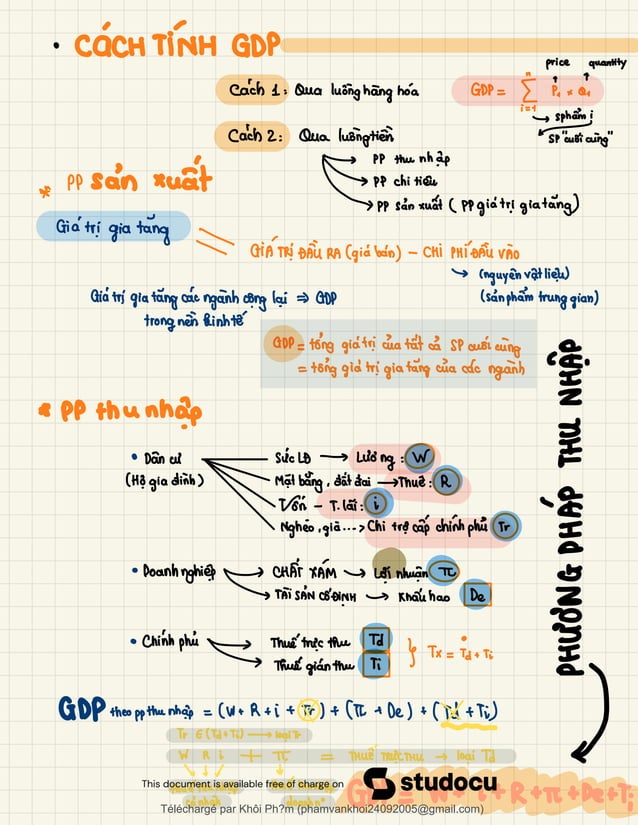 • CÁCH TÍNH GDP
price quantity
Cách 1: Qua luồng hàng hóa
GDP = n ∑ i=1 P₁ × Q₁
→ sphẩm i
SP "cuối cùng"
Cách 2: Qua luồng tiền
→ PP thu nhập
→ PP chi tiêu
→ PP sản xuất (PP giá trị gia tăng)
* PP sản xuất
Giá trị gia tăng
GIÁ TRỊ ĐẦU RA (giá bán) – CHI PHÍ ĐẦU VÀO
→ (nguyên vật liệu)
(sản phẩm trung gian)
Giá trị gia tăng các ngành cộng lại ⇒ GDP
trong nền kinh tế
GDP = tổng giá trị của tất cả SP cuối cùng
= tổng giá trị gia tăng của các ngành
PHƯƠNG PHÁP THU NHẬP
* PP thu nhập
• Dân cư
(Hộ gia đình)
Sức LĐ → Lương : W
Mặt bằng, đất đai → Thuê : R
Vốn – T. lãi : i
Nghèo, già...→ Chi trợ cấp chính phủ Tr
• Doanh nghiệp
→ CHẤT XÁM → Lợi nhuận π
→ TÀI SẢN CỐ ĐỊNH → Khấu hao De
• Chính phủ
→ Thuế trực thu Td
→ Thuế gián thu Ti
} Tx = Td + Ti
GDP theo pp thu nhập = (W + R + i + Tr) + (π + De) + (Td + Ti)
Tr ∈ (Td + Ti) → loại Tr
W R i + π = THUẾ TRỰC THU → loại Td
This document is available free of charge on
studocu
+ R + π + De + Ti
Téléchargé par Khôi Ph?m (phamvankhoi24092005@gmail.com)